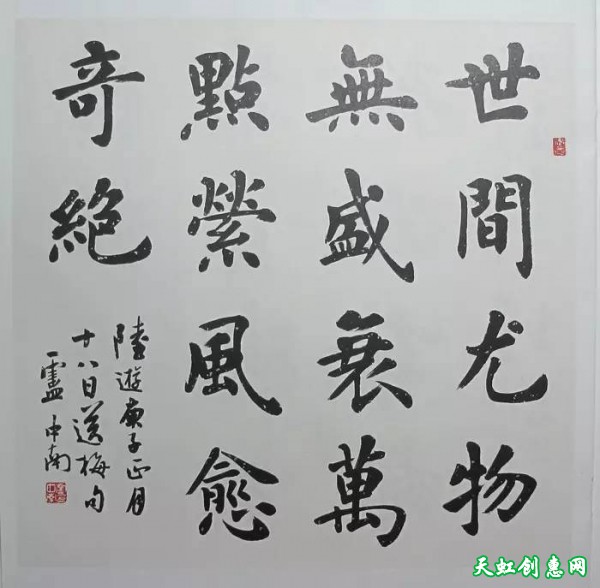 世間尤物
無盛衰萬
點縈風愈
奇絶
陸遊庚子正月
十八日送梅句
盧中南
天虹创惠网